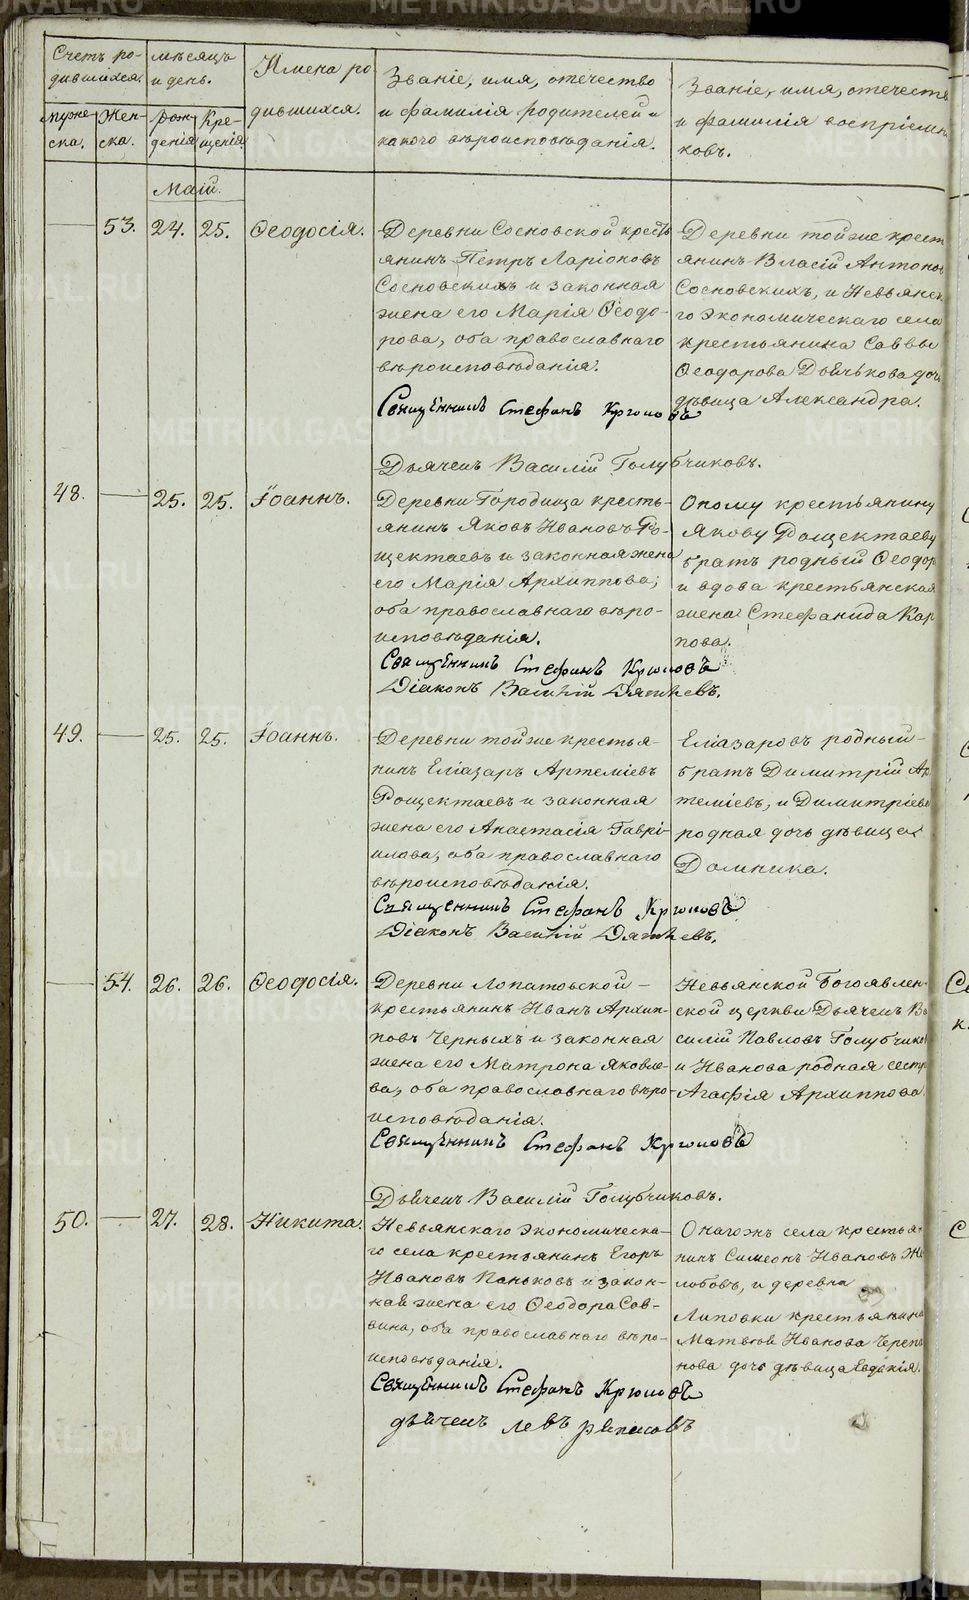 Счетъ ро-
дившихся.
мѣсяцъ
и день.
Имена ро
дившихся.
Званіе, имя, отечество
и фамилія родителей и
какого вѣроисповѣданія.
Званіе, имя, отечеств
и фамилія воспріемн
ковъ.
муже-
ска.
Жен-
ска.
Рож-
денія
Кре-
щенія
Маій.
53. 24. 25. Ѳеодосія.
Деревни Сосновской кресть
янинъ Петръ Ларіоновъ
Сосновскихъ и законная
жена его Марія Ѳеодо-
рова, оба православнаго
вѣроисповѣданія.
Священникъ Стефанъ Крюковъ
Дьячекъ Василій Голубчиковъ.
Деревни тойже крест
янинъ Власій Антонов
Сосновскихъ, и Невьянск
го экономическаго села
крестьянина Саввы
Ѳеодорова Дьячькова доч
дѣвица Александра.
48. 25. 25. Іоаннъ.
Деревни Городища кресть-
янинъ Яковъ Ивановъ Ро-
щектаевъ и законная жена
его Марія Архиппова,
оба православнаго вѣро-
исповѣданія.
Священникъ Стефанъ Крюковъ
Діаконъ Василій Дягилевъ.
Оному крестьянину
Якову Рощектаеву
братъ родный Ѳеодор
и вдова крестьянская
жена Стефанида Кар
пова.
49. 25. 25. Іоаннъ.
Деревни тойже крестья-
нинъ Еліазаръ Артеміевъ
Рощектаевъ и законная
жена его Анастасія Гаврі-
илова, оба православнаго
вѣроисповѣданія.
Священникъ Стефанъ Крюковъ
Діаконъ Василій Дягилевъ.
Еліазаровъ родный
братъ Димитрій Ар
теміевъ, и Димитріева
родная дочь дѣвица
Домника.
54. 26. 26. Ѳеодосія.
Деревни Лопатовской
крестьянинъ Иванъ Архип-
повъ Черныхъ и законная
жена его Матрона Яковле-
ва, оба православнаго вѣро-
исповѣданія.
Священникъ Стефанъ Крюковъ
Дьячекъ Василій Голубчиковъ.
Невьянской Богоявлен-
ской церкви Дьячекъ Ва
силій Павловъ Голубчиков
и Иванова родная сестр
Агафія Архиппова.
50. 27. 28. Никита.
Невьянскаго экономическа-
го села крестьянинъ Егоръ
Ивановъ Паньковъ и закон-
ная жена его Ѳеодора Сав-
вина, оба православнаго вѣро-
исповѣданія.
Священникъ Стефанъ Крюковъ
дьячекъ Левъ Ряпасовъ
Онагожъ села крестья-
нинъ Симеонъ Ивановъ Же
лобовъ, и деревни
Липовки крестьянина
Матвѣя Иванова Черепа
нова дочь дѣвица Евдокія.
METRIKI.GASO-URAL.RU